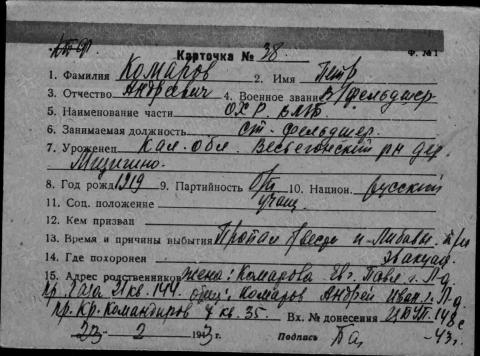 Карточка № 38. Ф. №1
1. Фамилия Комаров 2. Имя Петр
3. Отчество Андреевич 4. Военное звани В/фельдшер
5. Наименование части ОХР. ВМБ
6. Занимаемая должность ст. фельдшер.
7. Уроженец Кал. обл. Весьегонский рн дер.
Мишкино.
8. Год рожд 1919 9. Партийность б/п 10. Национ. русский
11. Соц. положение учащ.
12. Кем призван
13. Время и причины выбытия Пропал из Либавы при
14. Где похоронен эвакуац.
15. Адрес родственников жена: Комарова Ев г. Л-д
пр. 21 кв. 144. отец: Комаров Андрей Иван. г. Л-д
пр. Кр. Командиров 7 кв. 35. Вх. № донесения 148с
23 - 2 1943г. Подпись -43г.